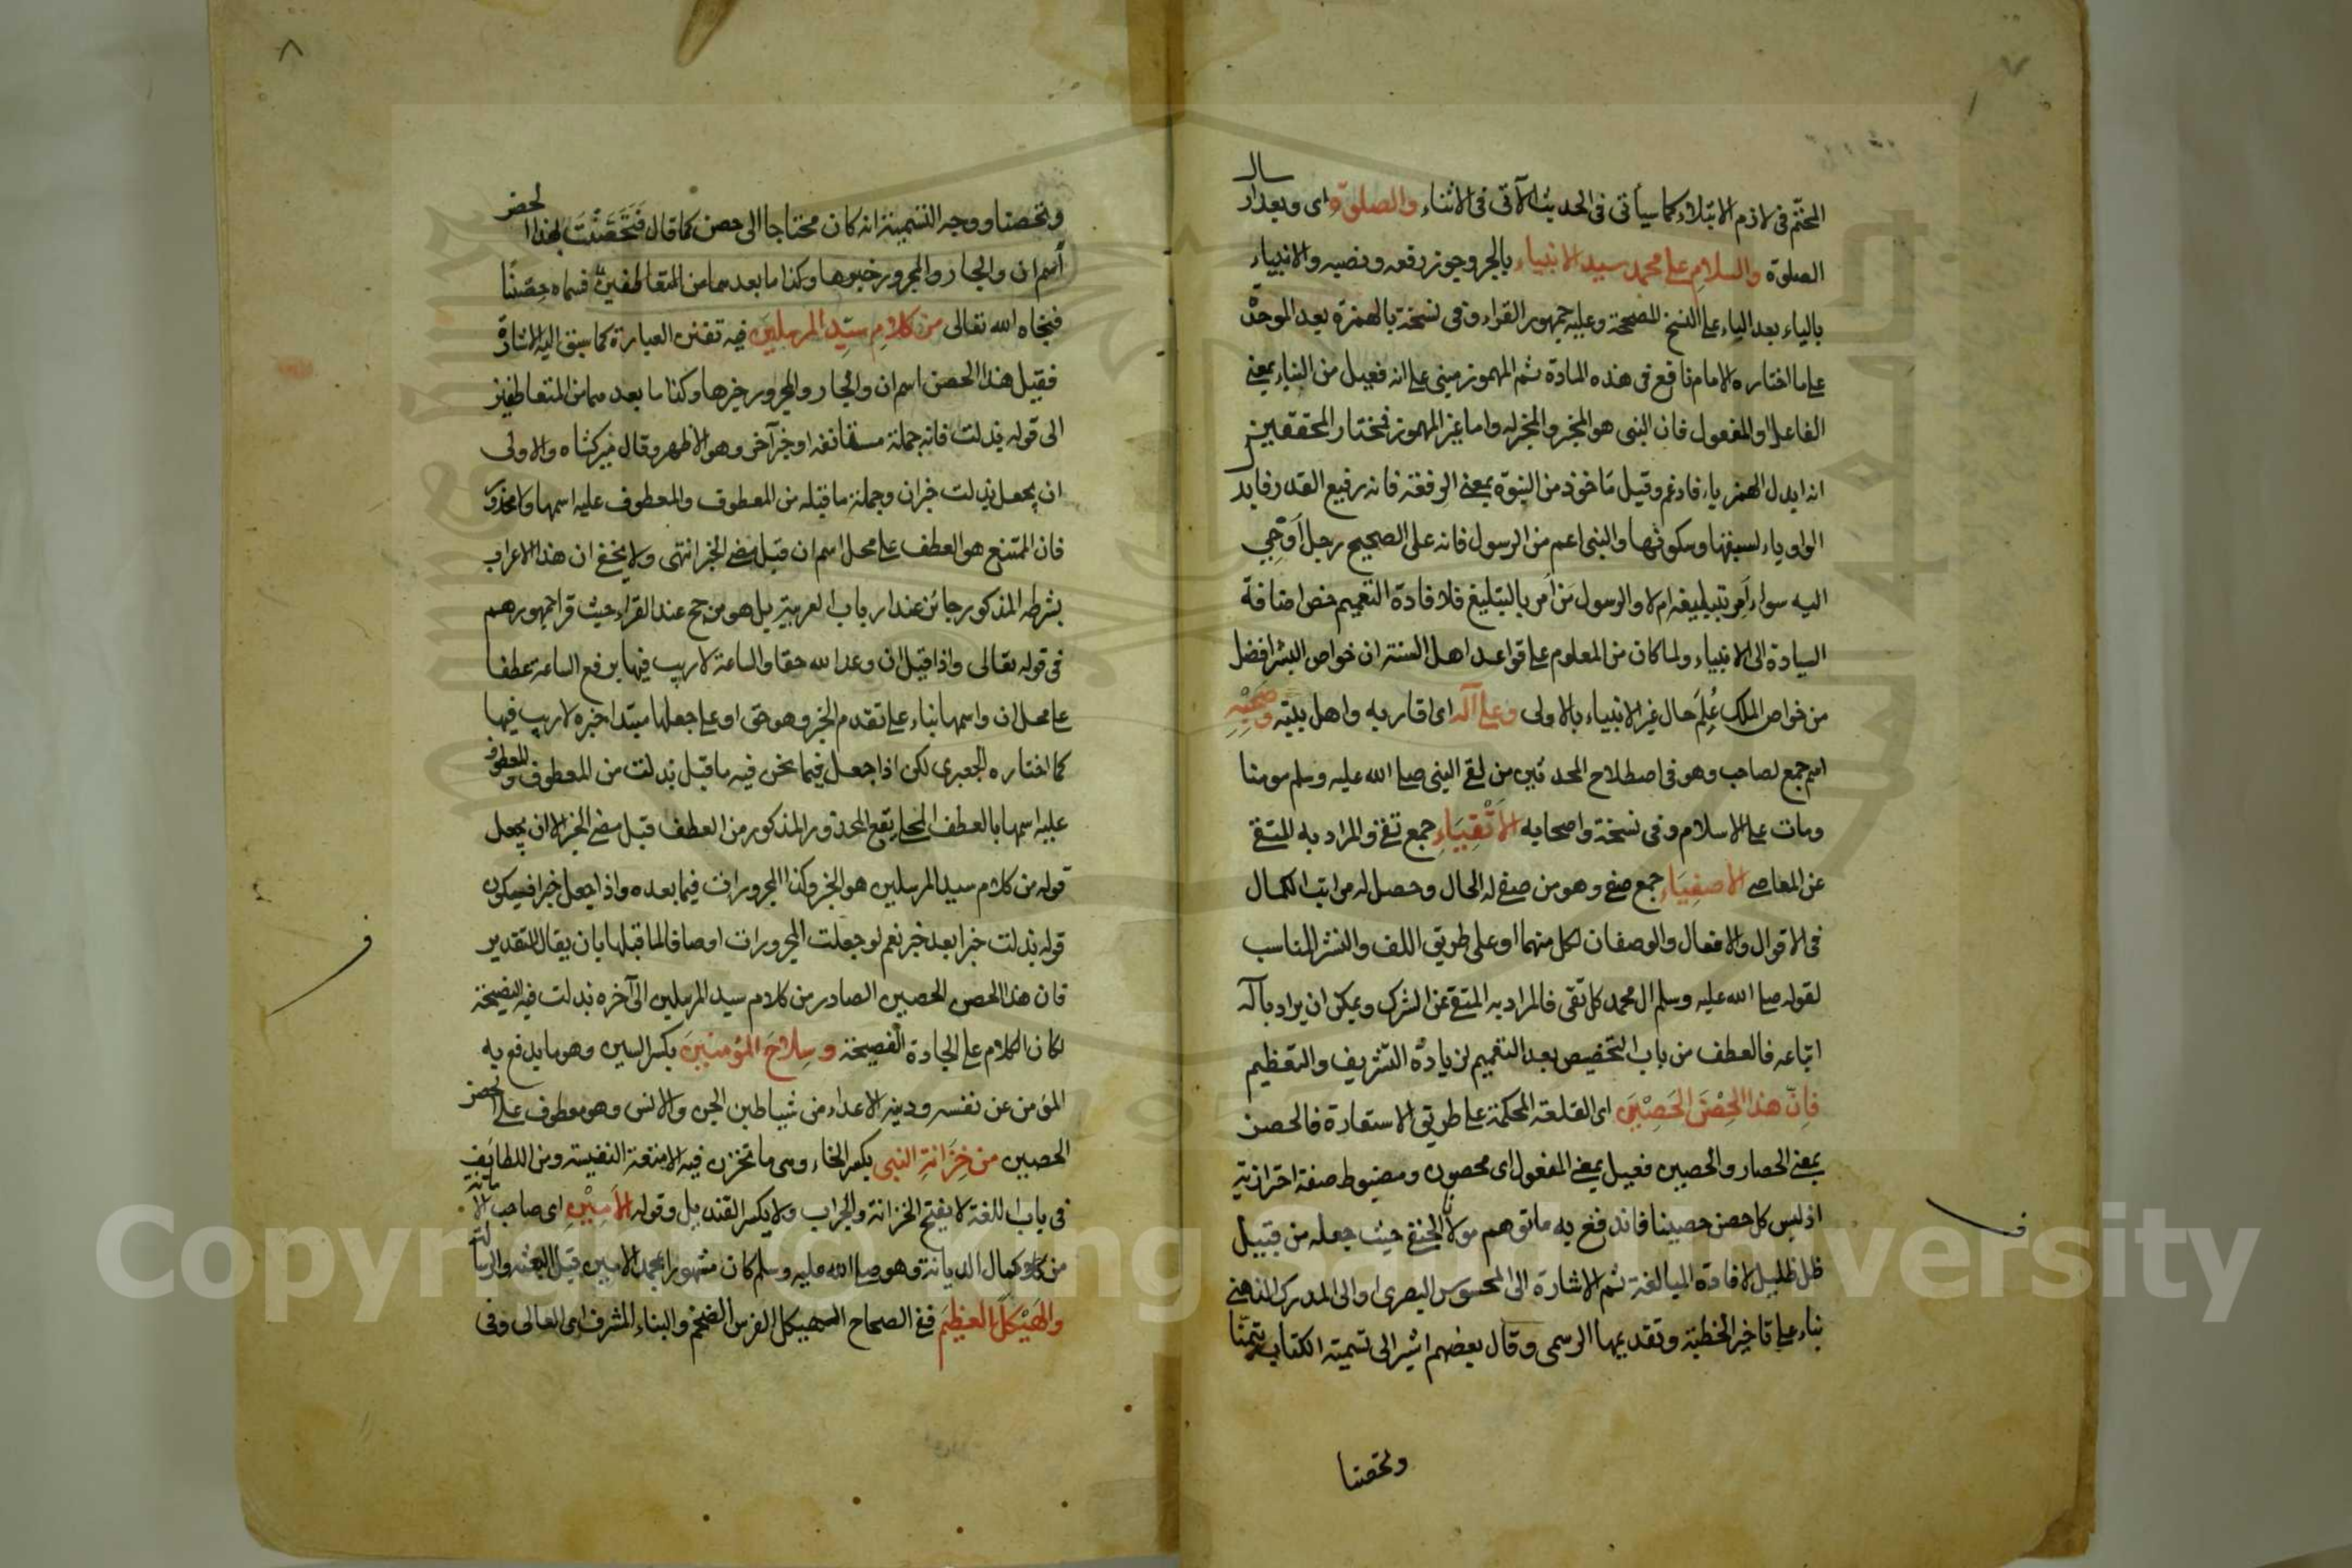 المحتم في لازم الابتلاء كما سيأتي في الحديث الآتي في الاثناء والصلوة اى وبعد ارسال
الصلوة والسلام على محمد سيد الانبياء بالجر ويجوز رفعه ونصبه والانبياء
بالياء بعد الياء على النسخ المصححة وعليه جمهور القراء وفى نسخة بالهمزة بعد الموحدة
على ما اختاره الامام نافع فى هذه المادة ثم المهموز مبنى على انه فعيل من النباء بمعنى
الفاعل او المفعول فان النبى هو المخبر والمخبر له واما غير المهموز فمختار المحققين
انه ابدل الهمز ياء فادغم وقيل مأخوذ من النبوة بمعنى الرفعة فانه رفيع القدر فابدل
الواو ياء لسبقها وسكونها والنبى اعم من الرسول فانه على الصحيح رجل اَوحى
اليه سواء اَمر بتبليغه ام لا والرسول مَن اُمر بالتبليغ فلافادة التعميم خص اضافة
السيادة الى الانبياء ولما كان من المعلوم على قواعد اهل السنة ان خواص البشر افضل
من خواص الملك عُلِمَ حال غير الانبياء بالاولى وعلى آله اى اقاربه واهل بيته وصَحْبِهِ
اسم جمع لصاحب وهو فى اصطلاح المحدثين من لقى النبى صلى الله عليه وسلم مومنا
ومات على الاسلام وفى نسخة واصحابه الاَتْقِيَاءِ جمع تقى والمراد به المتقى
عن المعاصى الاَصفِيَاءِ جمع صفى وهو من صفى له الحال وحصل له مراتب الكمال
فى الاقوال والافعال والوصفان لكل منهما او على طريق اللف والنشر المناسب
لقوله صلى الله عليه وسلم ال محمد كل تقى فالمراد به المتقى عن الشرك ويمكن ان يراد بآله
اتباعه فالعطف من باب التخصيص بعد التعميم لزيادة التشريف والتعظيم
فاِنّ هذا الحِصْنَ الحَصِيْنَ اى القلعة المحكمة على طريق الاستعارة فالحصن
بمعنى الحصار والحصين فعيل بمعنى المفعول اى محصون ومضبوط صفة احترازية
اذ ليس كل حصن حصينا فاندفع به ما توهم مولانا الحنفى حيث جعله من قبيل
ظل ظليل لافادة المبالغة ثم الاشارة الى المحسوس البصرى او الى المدرك الذهنى
بناء على تاخير الخطبة وتقديمها الرسمى وقال بعضهم اشير الى تسمية الكتاب تيمنا
وتحصنا
٨
وتحصنا ووجه التسمية انه كان محتاجا الى حصن كما قال فَتَحَصَّنْتُ بهذا الحصن
اسم ان والجار والمجرور خبرها وكذا ما بعدهما من المتعاطفين فسماه حِصْنًا
فنجاه الله تعالى من كلامِ سيّدِ المرسلِينَ فيه تفنن العبارة كما سبق اليه الاشارة
فقيل هذا الحصن اسم ان والجار والمجرور خبرها وكذا ما بعدهما من المتعاطفين
الى قوله بذلت فانه جملة مستانفة او خبر آخر وهو الاظهر وقال ميركشاه والاولى
ان يجعل بذلت خبر ان وجملة ما قبله من المعطوف والمعطوف عليه اسمها ولا محذور
فان الممتنع هو العطف على محل اسم ان قبل مضى الخبر انتهى ولا يخفى ان هذا الاعراب
بشرطه المذكور جائز عند ارباب العربية بل هو مرجح عند القراء حيث قرا جمهورهم
فى قوله تعالى واذا قيل ان وعد الله حقا والساعة لا ريب فيها برفع الساعة عطفا
على محل ان واسمها بناء على تقدم الخبر وهو حق او على جعلها مبتدا خبره لا ريب فيها
كما اختاره الجعبرى لكن اذا جعل فيما نحن فيه ما قبل بذلت من المعطوف والمعطوف
عليه اسمها بالعطف المحلى يقع المحذور المذكور من العطف قبل مضى الخبر الا ان يجعل
قوله من كلام سيد المرسلين هو الخبر وكذا المجرورات فيما بعده واذا جعل خبرا فيكون
قوله بذلت خبرا بعد خبر نعم لو جعلت المجرورات اوصافا لما قبلها بان يقال التقدير
فان هذا الحصن الحصين الصادر من كلام سيد المرسلين الى آخره بذلت فيه النصيحة
لكان الكلام على الجادة الفصيحة وسِلاَحَ المؤمنِينَ بكسر السين وهو ما يدفع به
المؤمن عن نفسه ودينه الاعداء من شياطين الجن والانس وهو معطوف على الحصن
الحصين من خِزَانَةِ النبى بكسر الخاء وهى ما تخزن فيه الامتعة النفيسة ومن اللطايف
فى باب اللغة لا يفتح الخزانة والجراب ولا يكسر القنديل وقوله الاَمِيْنِ اى صاحب الامانة
من كمال الديانة وهو صلى الله عليه وسلم كان مشهورا بمحمد الامين قبل البعثة والرسالة
والهَيْكَلَ العظِيمَ ففى الصحاح الهيكل الفرس الضخم والبناء المشرف اى العالى وفى